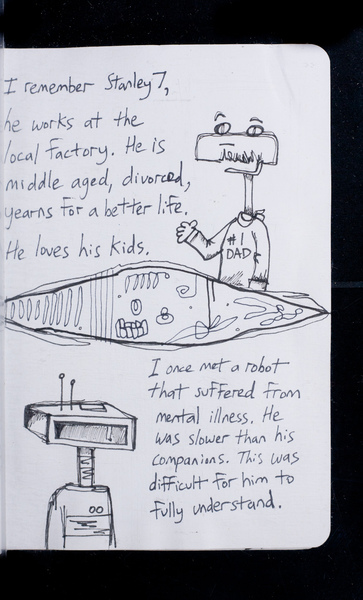 I remember Stanley 7,
he works at the
local factory. He is
middle aged, divorced,
yearns for a better life.
He loves his kids.
#1
DAD
I once met a robot
that suffered from
mental illness. He
was slower than his
companions. This was
difficult for him to
fully understand.